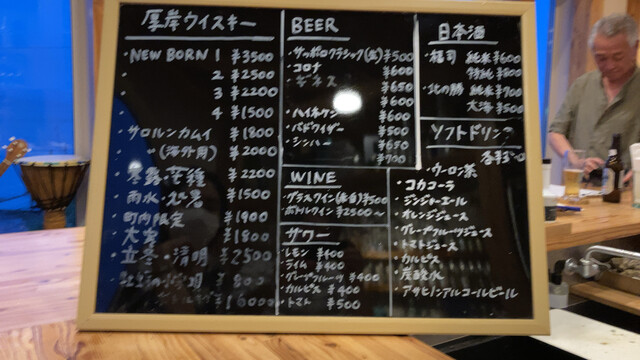 厚岸ウイスキー
・NEW BORN 1 ¥3500
2 ¥2500
3 ¥2200
4 ¥1500
・サロルンカムイ ¥1800
・〃(海外用) ¥2000
・寒露・芒種 ¥2200
・雨水・処暑 ¥1500
・町内限定 ¥1900
・大寒 ¥1800
・立冬・清明 ¥2500
¥800
¥6000
BEER
・サッポロクラシック(生) ¥500
・コロナ ¥600
・ギネス ¥650
¥600
・ハイネケン ¥600
・バドワイザー ¥500
・シンハー ¥650
¥700
WINE
・グラスワイン(赤・白) ¥500
・ボトルワイン ¥2500〜
サワー
・レモン ¥400
・ライム ¥400
・グレープフルーツ ¥400
・カルピス ¥400
・トマト ¥500
日本酒
・福司 純米 ¥600
特純 ¥800
・北の勝 純米 ¥700
大海 ¥500
ソフトドリンク
・ウーロン茶
・コカコーラ
・ジンジャーエール
・オレンジジュース
・グレープフルーツジュース
・トマトジュース
・カルピス
・炭酸水
・アサヒノンアルコールビール